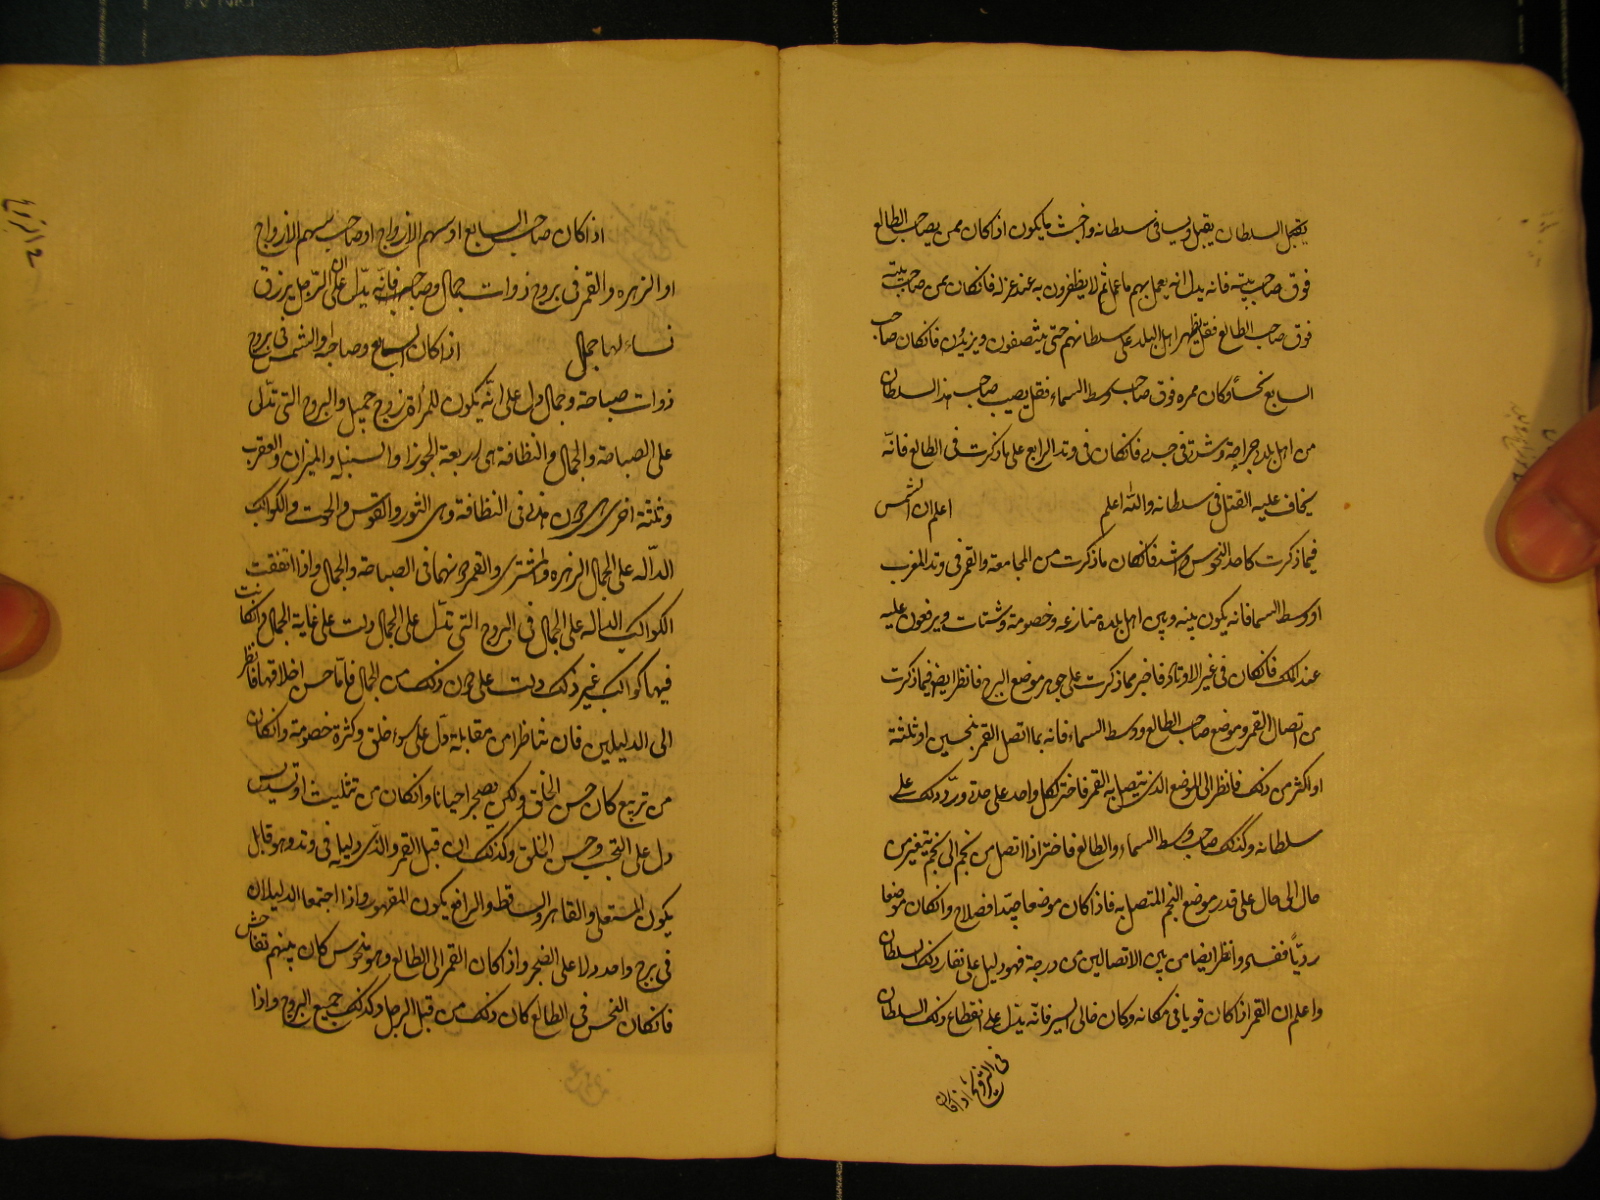 يقبل السلطان يقبل وليا في سلطانه واخبث ما يكون اذا كان ممن يصاحب الطالع
فوق صاحب بيته فانه يدل انه يعمل بهم ما عمل ثم لا يظفرون به عند عزله فانكان ممن صاحب بيته
فوق صاحب الطالع فقل يظهر اهل البلد على سلطانهم حتى ينتصفون ويزيدون فانكان صاحب
السابع نحسا وكان ممره فوق صاحب وسط السماء فقل يصيب صاحب هذا السلطان
من اهل بلده جراحة وشدة في جسده فانكان في وتد الرابع على ما ذكرت في الطالع فانه
يخاف عليه القتل في سلطانه والله اعلم اعلم ان الشمس
فيما ذكرت كاحد النحوس واشد فانكان ما ذكرت من المجامعة والقمر في وتد المغرب
او وسط السما فانه يكون بينه وبين اهل بلده منازعه وخصومة وشتات ويرفعون عليه
عند الملك فانكان في غير الاوتاد فاخبر مما ذكرت على جوهر موضع البرج فانظر ايضا فيما ذكرت
من اتصال القمر وموضع صاحب الطالع ووسط السماء فانه بما اتصل القمر بنحسين او ثلثة
او اكثر من ذلك فانظر الى الموضع الذي يتصل به القمر فاختر لكل واحد على حدة ورد ذلك على
سلطانه وكذلك صاحب وسط السماء والطالع فاختر اذا اتصل من نجم الى نجم يتغير من
حال الى حال على قدر موضع النجم المتصل به فاذا كان موضعا جيدا فصلاح وانكان موضعا
رديّا ففساد وانظر ايضا من بين الاتصالين من درجة فهو دليل على نفار ذلك السلطان
واعلم ان القمر اذا كان قويا في مكانه وكان خالى السير فانه يدل على انقطاع ذلك السلطان
في التزويج اذا كان
اذا كان صاحب السابع او سهم الازواج او صاحب سهم الازواج
او الزهره والقمر في بروج ذوات جمال وصباحه فانه يدل على ان الرجل يرزق
نساء لها جمال اذا كان السابع وصاحبه والشمس في بروج
ذوات صباحة وجمال دل على انه يكون للمراة زوج جميل والبروج التي تدل
على الصباحة والجمال والنظافة هي اربعة الجوزا والسنبله والميزان والعقرب
وثلثة اخرى هي دون هذه في النظافة وهي الثور والقوس والحوت والكواكب
الدالة على الجمال الزهره والمشترى والقمر دونهما في الصباحة والجمال واذا اتفقت
الكواكب الدالة على الجمال في البروج التي تدل على الجمال دلت على غاية الجمال وان كانت
فيها كواكب غير ذلك دلت على دون ذلك من الجمال فاما حسن اخلاقها فانظر
الى الدليلين فان تناظرا من مقابلة دل على سوء خلق وكثرة خصومة وانكان
من تربيع كان حسن الخلق ولكن يضجر احيانا وانكان من تثليث او تسديس
دل على التحبب وحسن الخلق وكذلك ان قبل القمر والذي دليله في وتد وهو قابل
يكون المستعلي والقاهر والساقط والرافع يكون المقهور واذا اجتمعا الدليلان
في برج واحد دلا على الضجر واذا كان القمر الى الطالع وهو منحوس كان بينهم تفاحش
فانكان النحس في الطالع كان ذلك من قبل الرجل وكذلك جميع البروج واذا